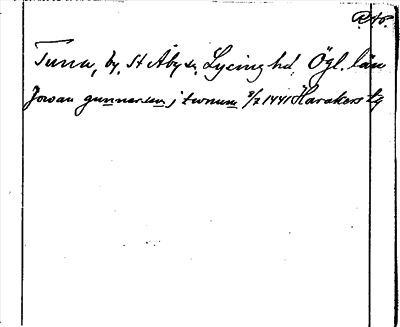 Tuna, by, St Åby sn, Lysing hd, Ögl. län
Jowan gunnarsson j twnum 3/2 1441 Harakers tg